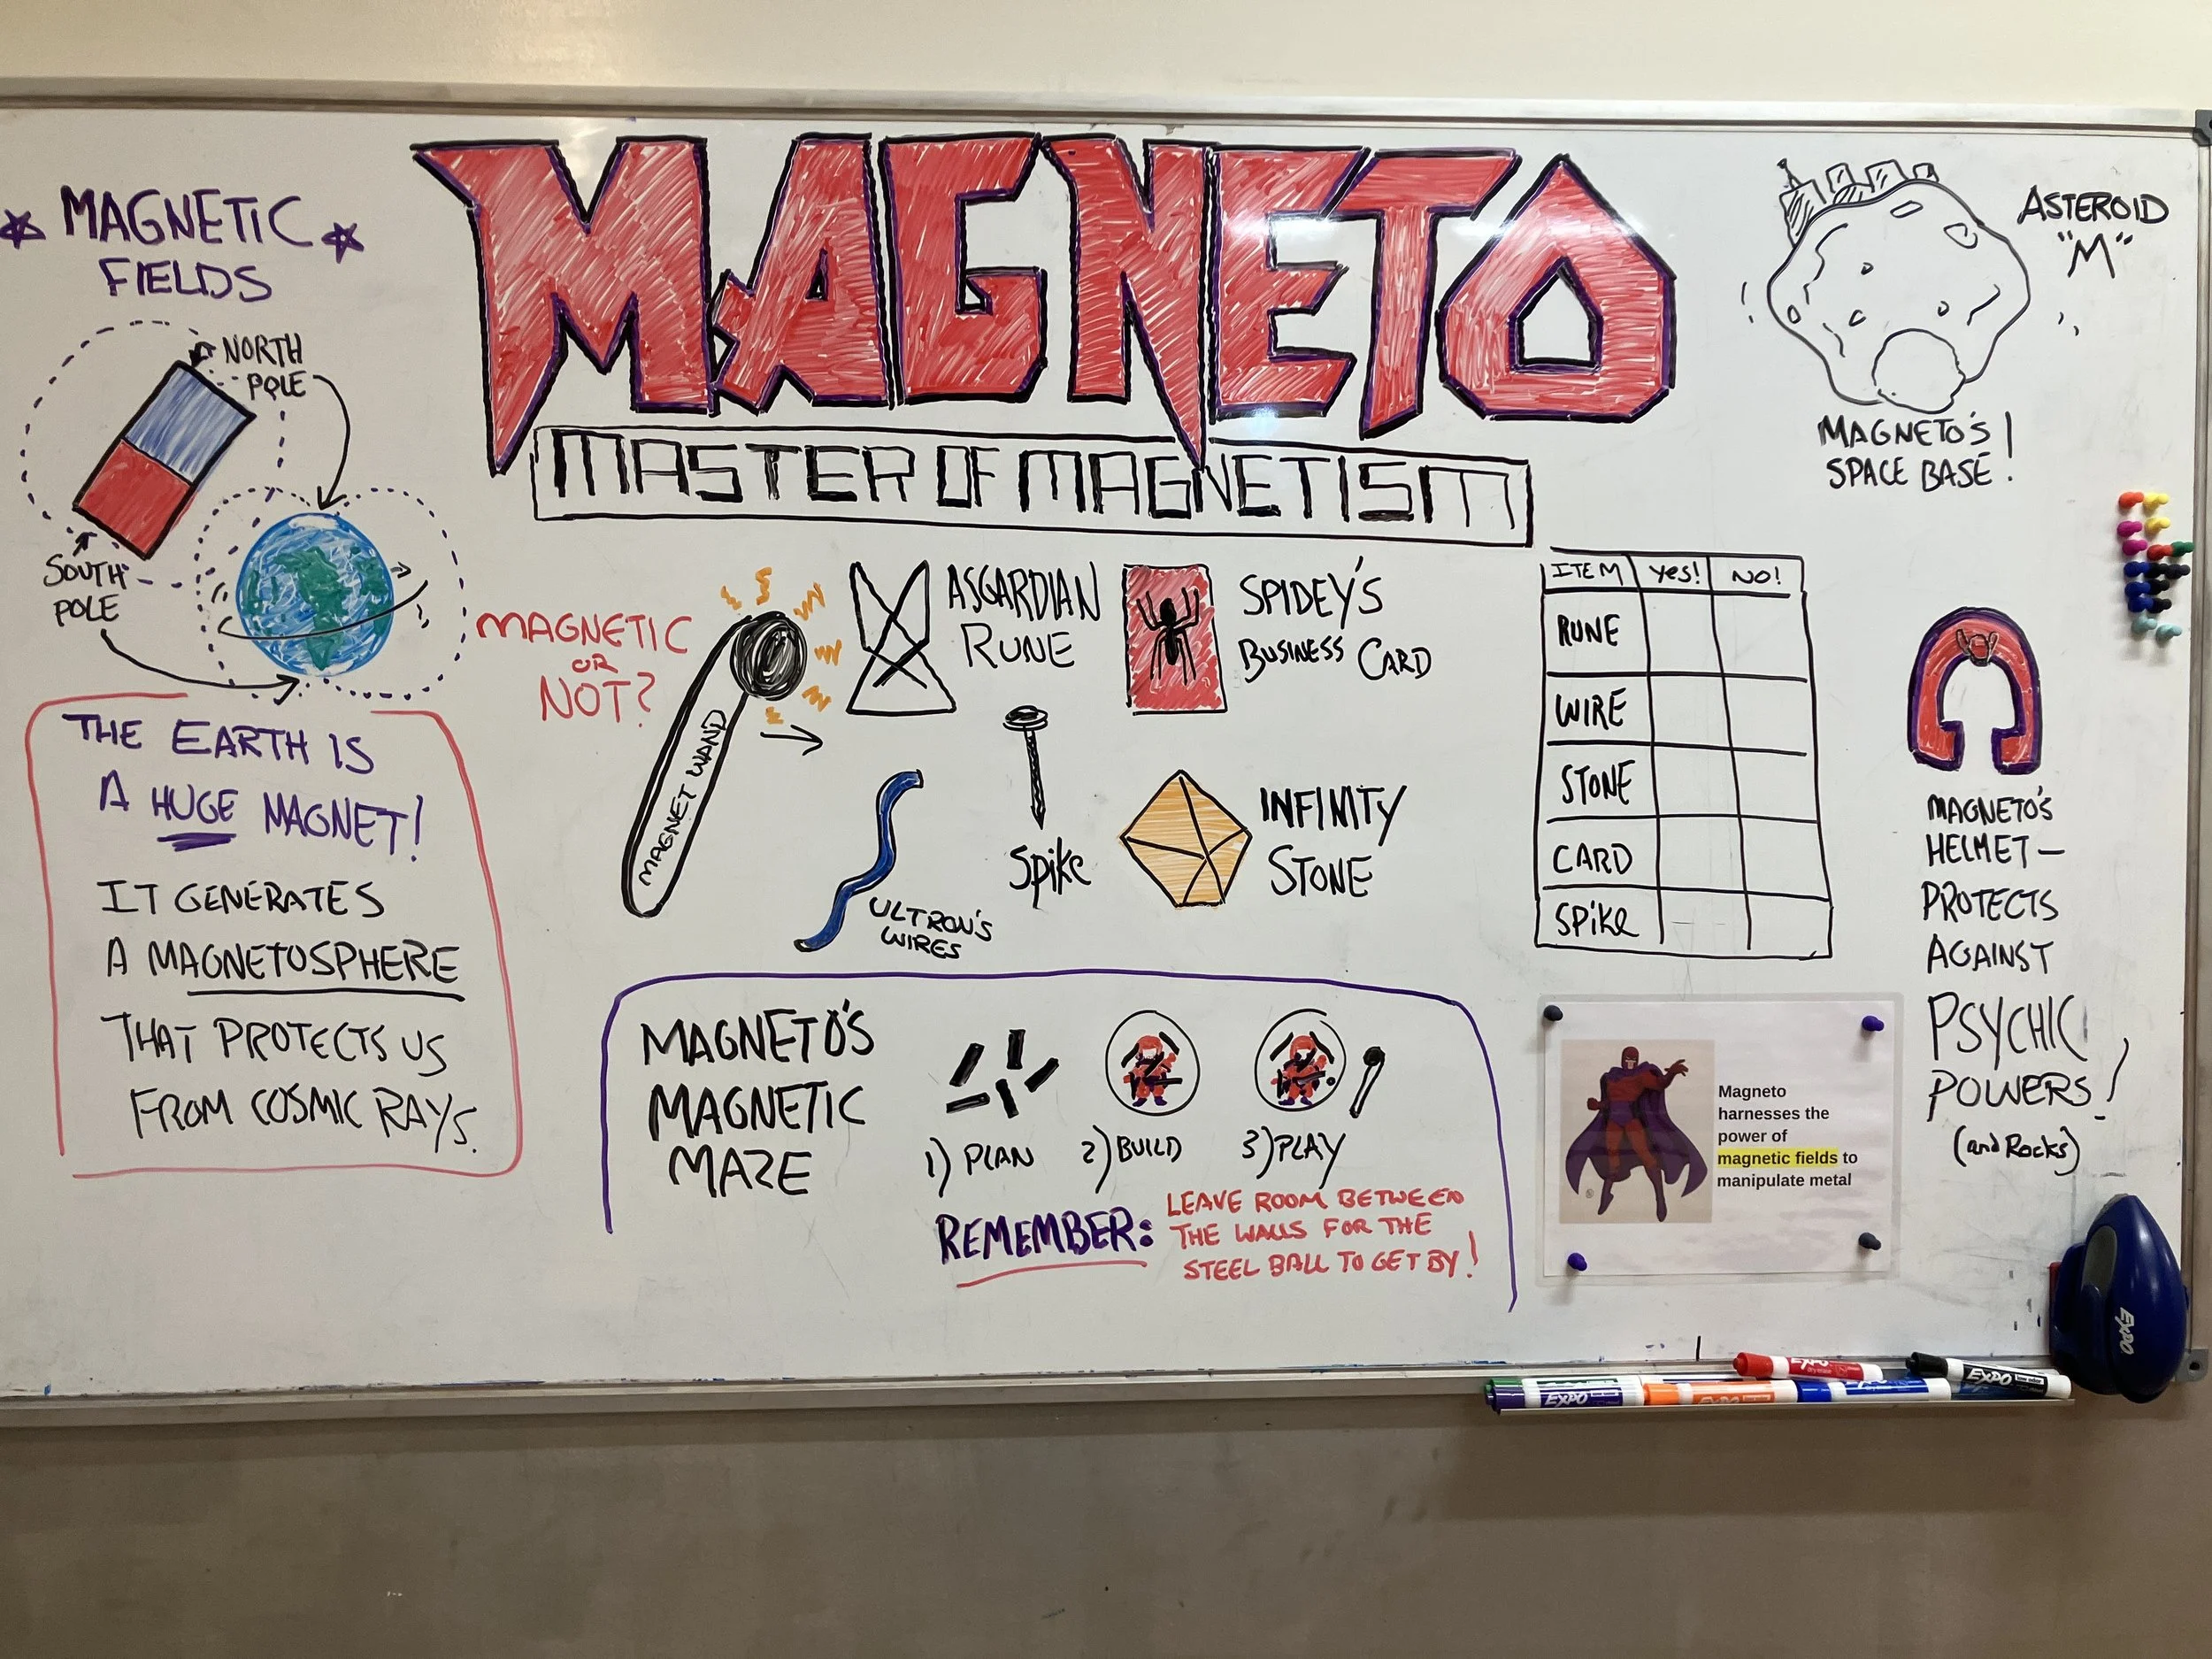 MAGNETO
MASTER OF MAGNETISM
MAGNETIC
FIELDS
NORTH
POLE
SOUTH
POLE
THE EARTH IS
A HUGE MAGNET!
IT GENERATES
A MAGNETOSPHERE
THAT PROTECTS US
FROM COSMIC RAYS.
MAGNETIC
OR
NOT?
MAGNET WAND
ASGARDIAN
RUNE
SPIDEY'S
BUSINESS CARD
ULTRON'S
WIRES
Spike
INFINITY
STONE
ITEM yes! NO!
RUNE
WIRE
STONE
CARD
SPiKe
ASTEROID
"M"
MAGNETO'S
SPACE BASE!
MAGNETO'S
HELMET—
PROTECTS
AGAINST
PSYCHIC
POWERS!
(and Rocks)
MAGNETO'S
MAGNETIC
MAZE
1) PLAN 2) BUILD 3) PLAY
REMEMBER:
LEAVE ROOM BETWEEN
THE WALLS FOR THE
STEEL BALL TO GET BY!
Magneto
harnesses the
power of
magnetic fields to
manipulate metal
EXPO
EXPO
EXPO
EXPO
EXPO